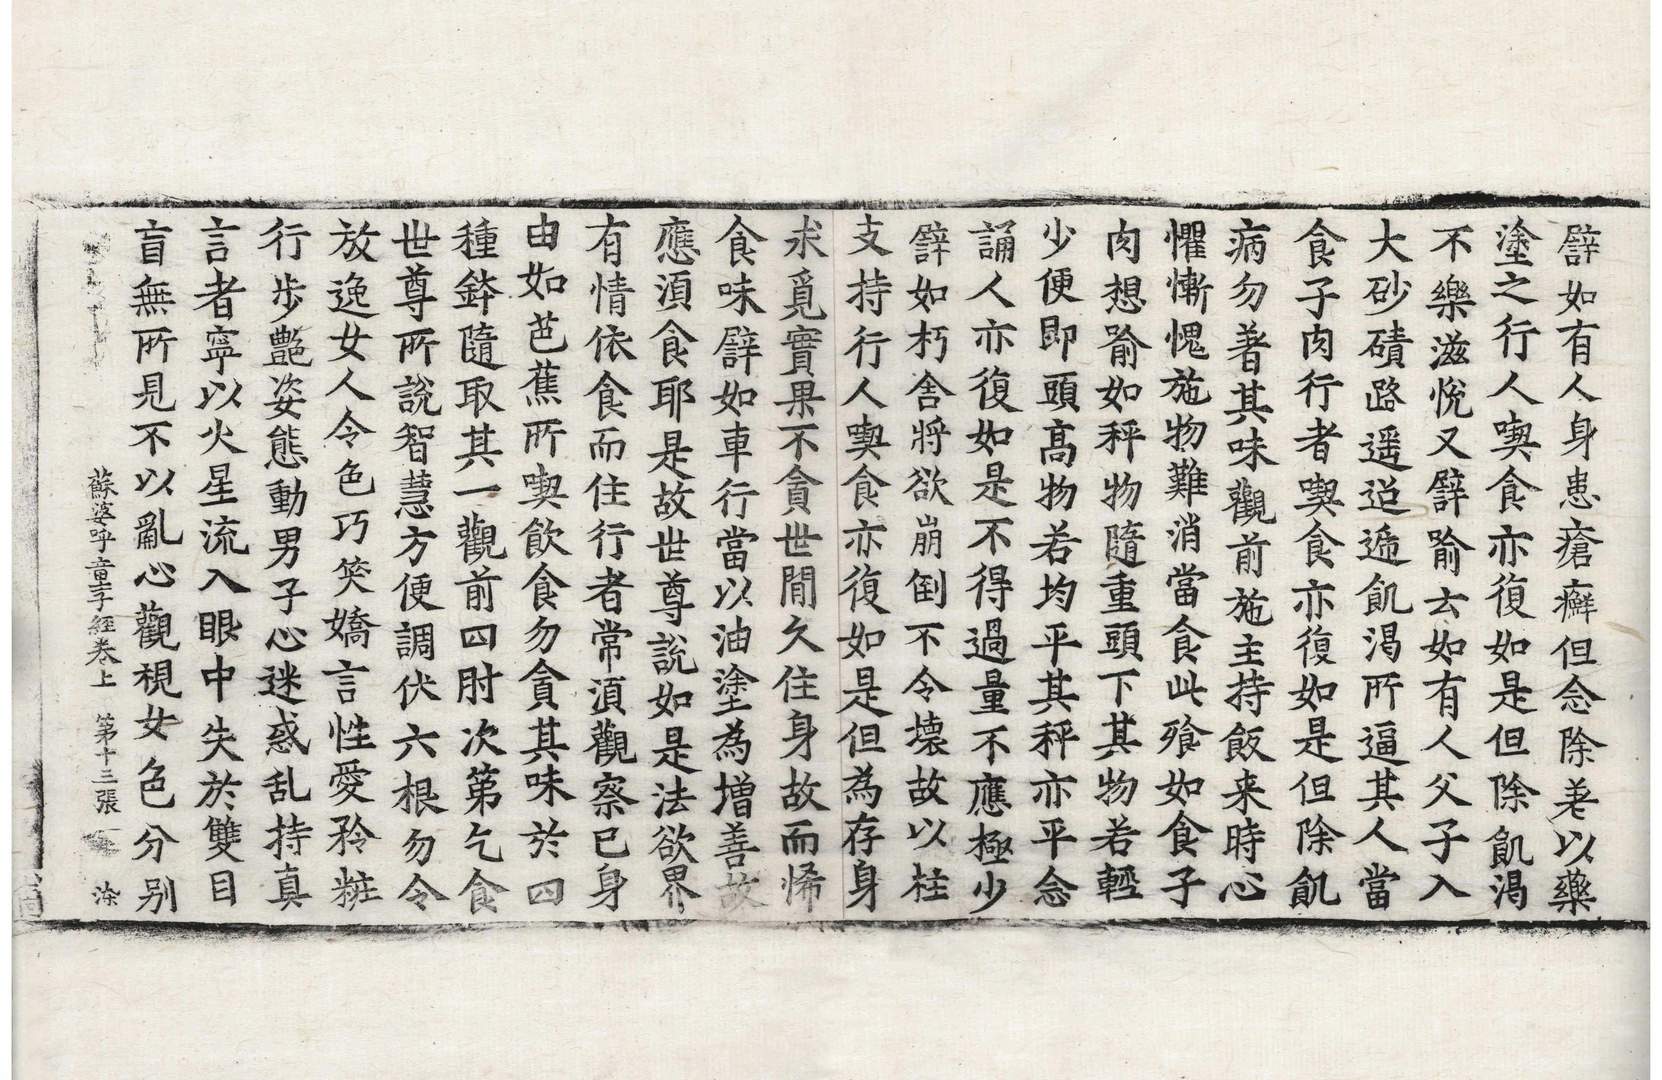 譬如有人身患瘡癬但念除差以藥
塗之行人喫食亦復如是但除飢渴
不樂滋悅又譬喻云如有人父子入
大砂磧路遥迢遞飢渴所逼其人當
食子肉行者喫食亦復如是但除飢
病勿著其味觀前施主持飯来時心
懼慚愧施物難消當食此飱如食子
肉想喻如秤物隨重頭下其物若輕
少便即頭高物若均平其秤亦平念
誦人亦復如是不得過量不應極少
譬如朽舍將欲崩倒不令壊故以柱
支持行人喫食亦復如是但為存身
求覓實果不貪世間久住身故而悕
食味譬如車行當以油塗為增善故
應湏食耶是故世尊說如是法欲界
有情依食而住行者常湏觀察已身
由如芭蕉所喫飲食勿貪其味於四
種鉢隨取其一觀前四肘次第乞食
世尊所說智慧方便調伏六根勿令
放逸女人令色巧笑嬌言性愛矜粧
行步艷姿態動男子心迷惑乱持真
言者寧以火星流入眼中失於雙目
盲無所見不以亂心觀視女色分别
蘇婆呼童子経卷上 第十三張 染